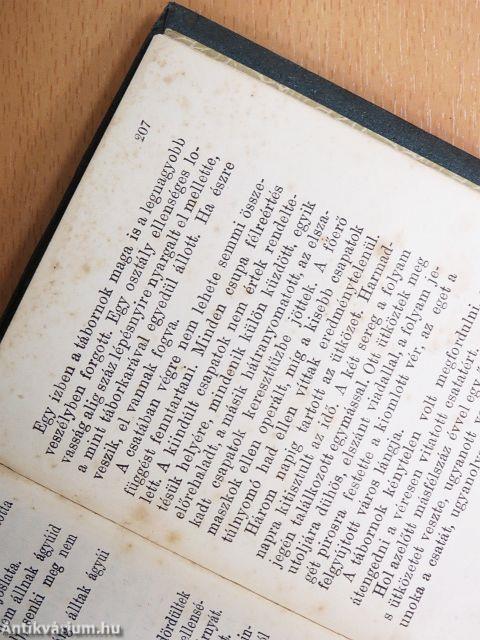 207
Egy izben a tábornok maga is a legnagyobb
veszélyben forgott. Egy osztály ellenséges lo-
vasság alig száz lépésnyire nyargalt el mellette,
a mint táborkarával egyedül állott. Ha észre
veszik, el vannak fogva.
A csatában végre nem lehete semmi össze-
függést fenntartani. Minden csupa félreértés
lett. A kiindult csapatok nem értek rendelte-
tésük helyére, mindenik külön küzdött, egyik
előrehaladt, a másik hátranyomatott, az elsza-
kadt csapatok kereszttűzbe jöttek. A főerő
maszkok ellen operált, mig a kisebb csapatok
túlnyomó had ellen vittak eredménytelenül.
Három napig tartott az ütközet. Harmad
napra kitisztult az idő. A két sereg a folyam
jegén találkozott egymással. Ott ütköztek meg
utoljára dühös, elszánt viadallal, a folyam je-
gét pirosra festette a kiomlott vér, az eget a
felgyujtott város lángja.
A tábornok kénytelen volt megfordulni
átengedni a véresen vitatott csatatért.
Hol azelőtt másfélszáz évvel egy
s ütközetet veszte, ugyanott
unoka a csatát,
jóslata.
állnak ágyúid
enki meg nem
álltak ágyúi
fördültek
ellensé-
Antikvárium.hu